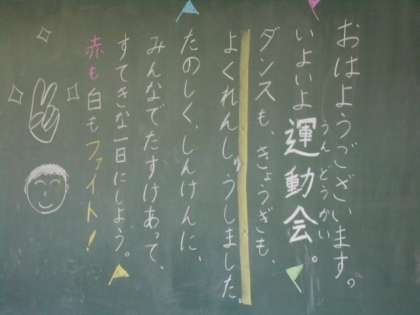 おはようございます。
いよいよ運動会。
うんどうかい
ダンスも、きょうぎも、
よくれんしゅうしました。
たのしく、しんけんに、
みんなでたすけあって、
すてきな一日にしよう。
赤も白もファイト!